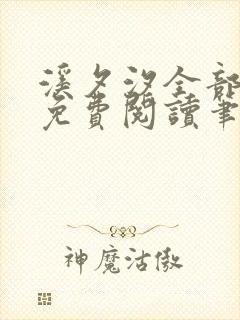 溪夕汐全部
免費閱讀筆
神魔沽傲